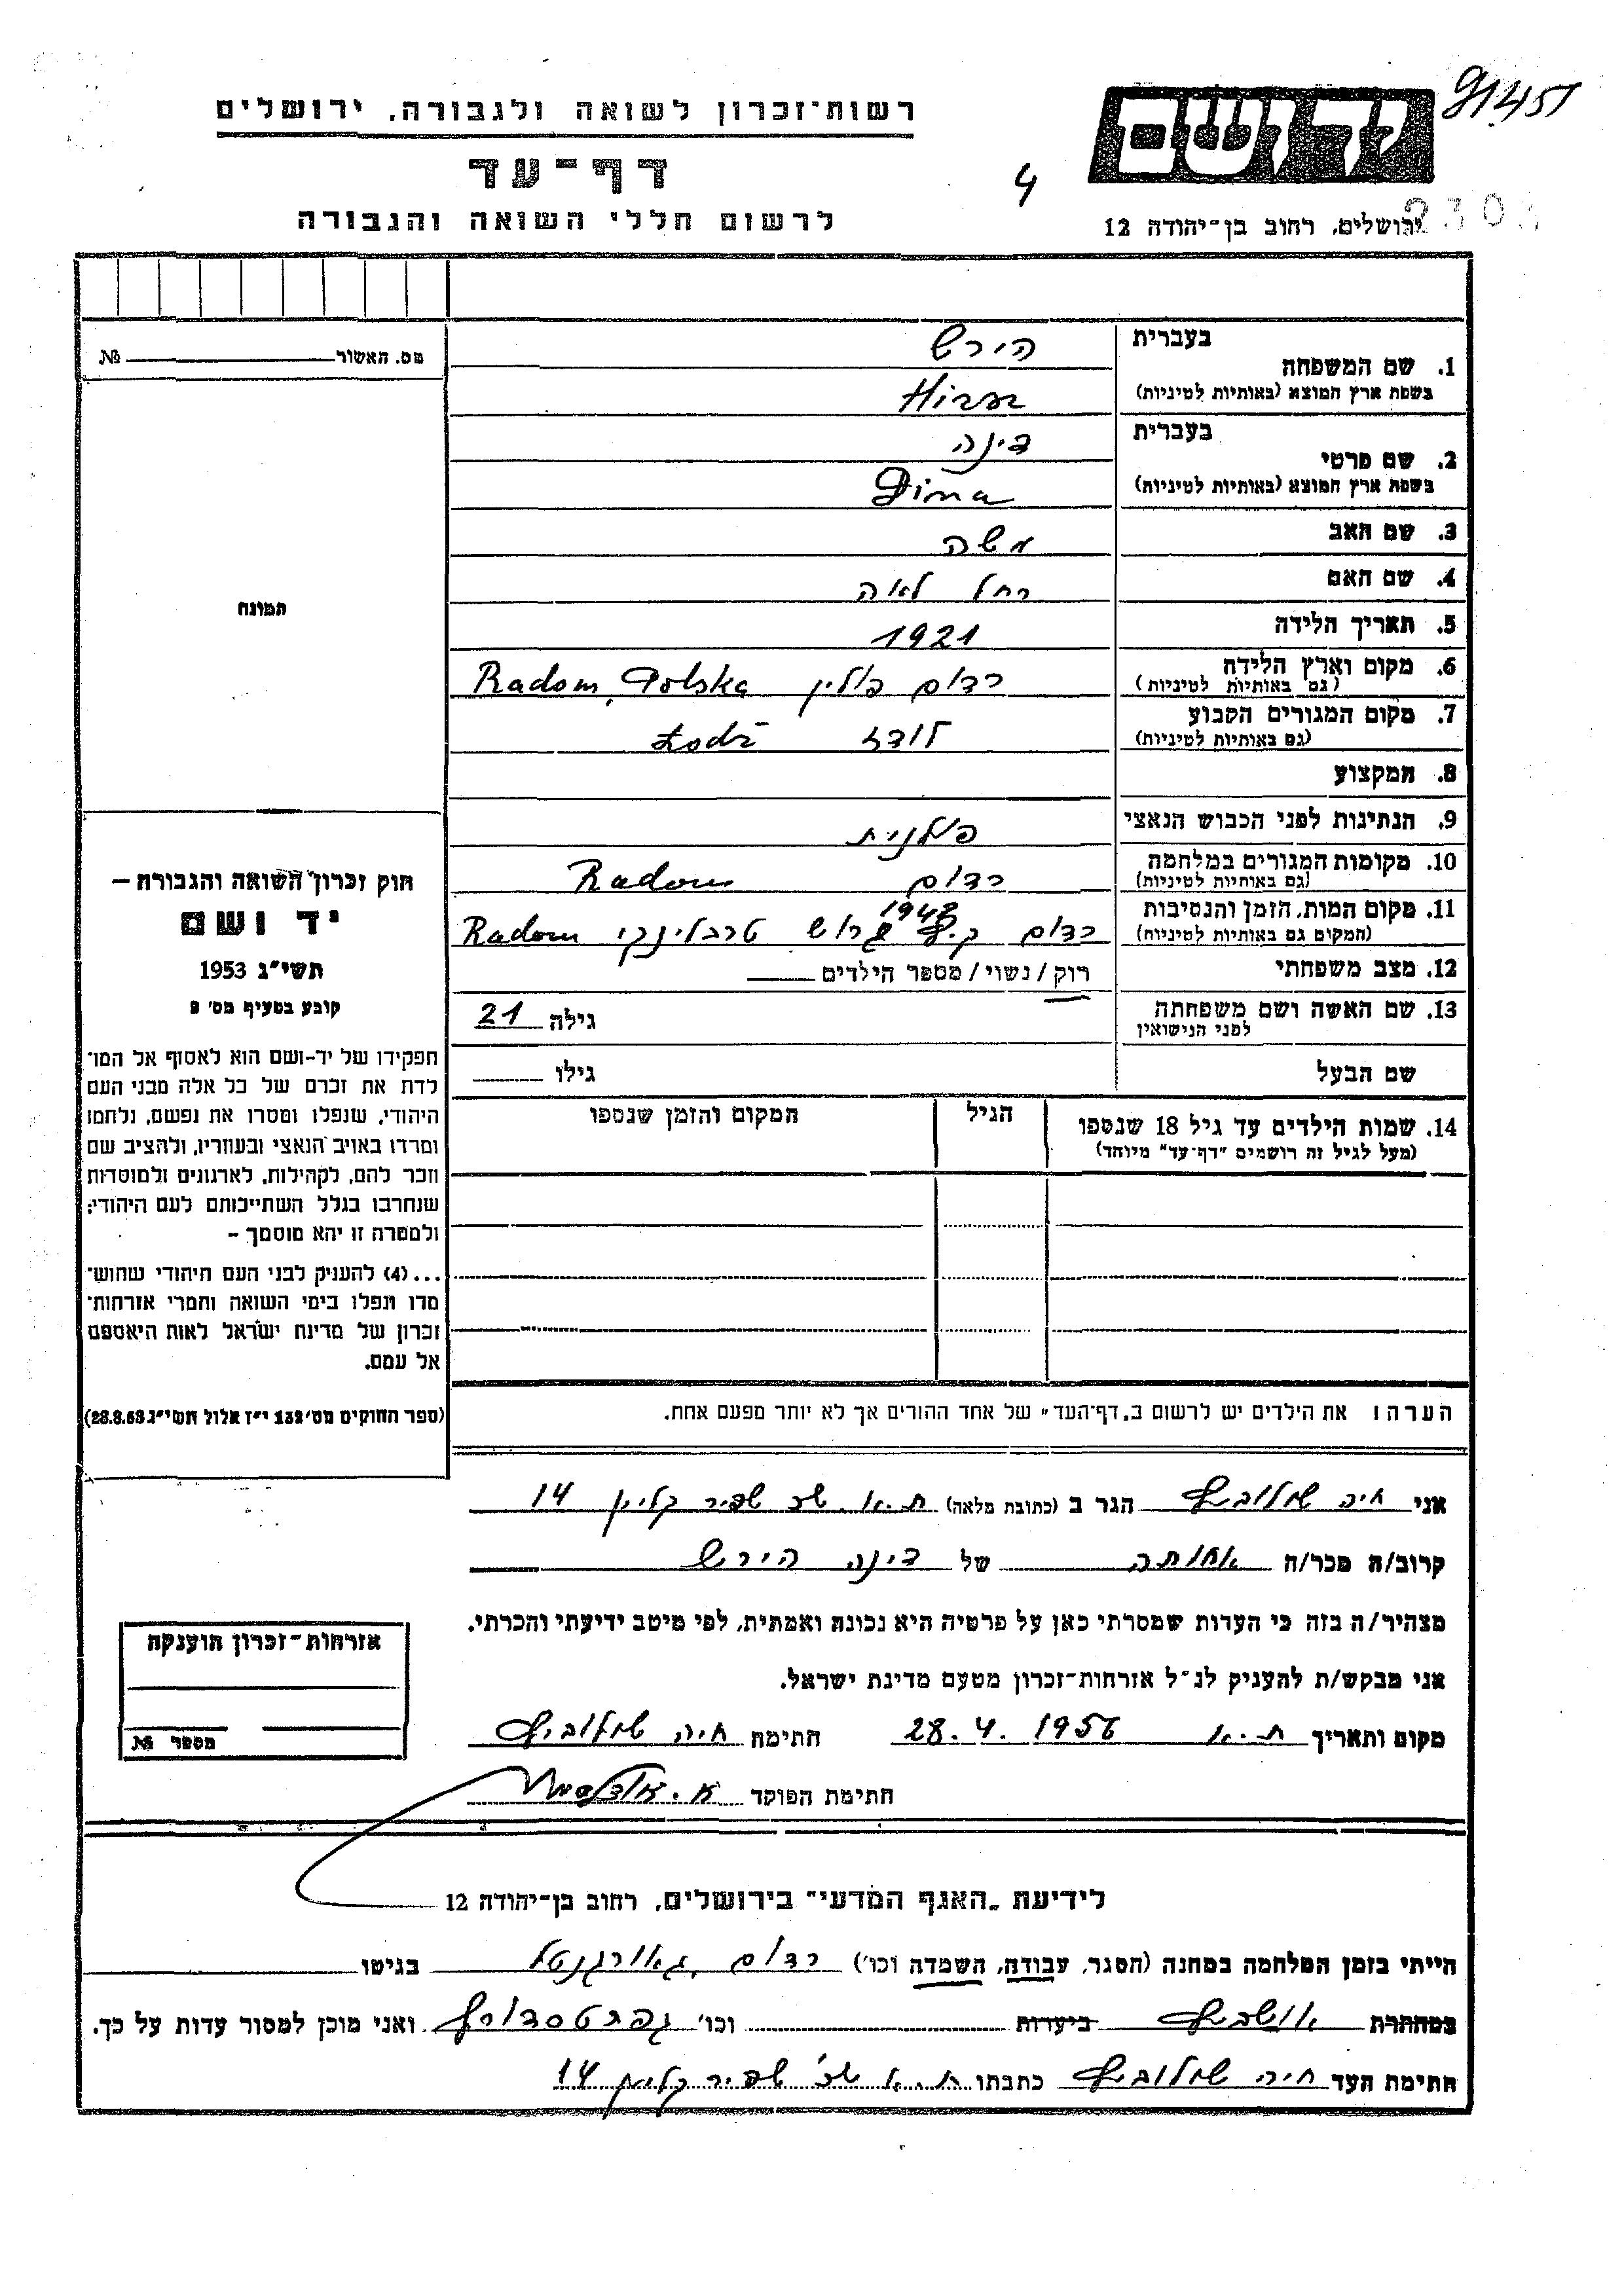 91451
רשות-זכרון לשואה ולגבורה, ירושלים
דף-עד
לרשום חללי השואה והגבורה
4
יד ושם
ירושלים, רחוב בן-יהודה 12
בעברית
1. שם המשפחה
הירש
בשפת ארץ המוצא (באותיות לטיניות)
בעברית
2. שם פרטי
דינה
בשפת ארץ המוצא (באותיות לטיניות)
Dina
3. שם האב
משה
4. שם האם
רחל לאה
5. תאריך הלידה
1921
6. מקום וארץ הלידה
(גם באותיות לטיניות)
רדום פולין Radom, Polska
7. מקום המגורים הקבוע
(גם באותיות לטיניות)
לודז Łodź
8. המקצוע
9. הנתינות לפני הכבוש הנאצי
פולנית
10. מקומות המגורים במלחמה
(גם באותיות לטיניות)
רדום Radom
11. מקום המות, הזמן והנסיבות
(המקום גם באותיות לטיניות)
רדום גרוש טרבלינקי Radom
12. מצב משפחתי
רוק / נשוי / מספר הילדים
13. שם האשה ושם משפחתה
לפני הנישואין
גילה 21
שם הבעל
גילו
14. שמות הילדים עד גיל 18 שנספו
(מעל לגיל זה רושמים "דף-עד" מיוחד)
הגיל
המקום והזמן שנספו
הערה: את הילדים יש לרשום ב„דף-העד" של אחד ההורים אך לא יותר מפעם אחת.
מס. האשור №
תמונה
חוק זכרון השואה והגבורה —
יד ושם
תשי"ג 1953
קובע בסעיף מס' 2
תפקידו של יד-ושם הוא לאסוף אל המו־
לדת את זכרם של כל אלה מבני העם
היהודי, שנפלו ומסרו את נפשם, נלחמו
ומרדו באויב הנאצי ובעוזריו, ולהציב שם
וזכר להם, לקהילות, לארגונים ולמוסדות
שנחרבו בגלל השתייכותם לעם היהודי;
ולמטרה זו יהא מוסמך —
...(4) להעניק לבני העם היהודי שהוש־
מדו ונפלו בימי השואה והמרי אזרחות־
זכרון של מדינת ישראל לאות היאספם
אל עמם.
(ספר החוקים מס' 132 י"ז אלול תשי"ג 28.8.53)
אני חיה הגר ב (כתובת מלאה) ת.א. קליין 14
קרוב/ה מכר/ה אחותה של דינה הירש
מצהיר/ה בזה כי העדות שמסרתי כאן על פרטיה היא נכונה ואמתית, לפי מיטב ידיעתי והכרתי.
אני מבקש/ת להעניק לנ"ל אזרחות-זכרון מטעם מדינת ישראל.
מקום ותאריך ת.א. 28.4.1956 חתימה חיה
חתימת הפוקד
אזרחות-זכרון הוענקה
מספר №
לידיעת „האגף המדעי" בירושלים, רחוב בן-יהודה 12
הייתי בזמן המלחמה במחנה (הסגר, עבודה, השמדה וכו') רדום בגיטו
במחתרת ביערות וכו' ואני מוכן למסור עדות על כך.
חתימת העד חיה כתבתו ת.א. קליין 14